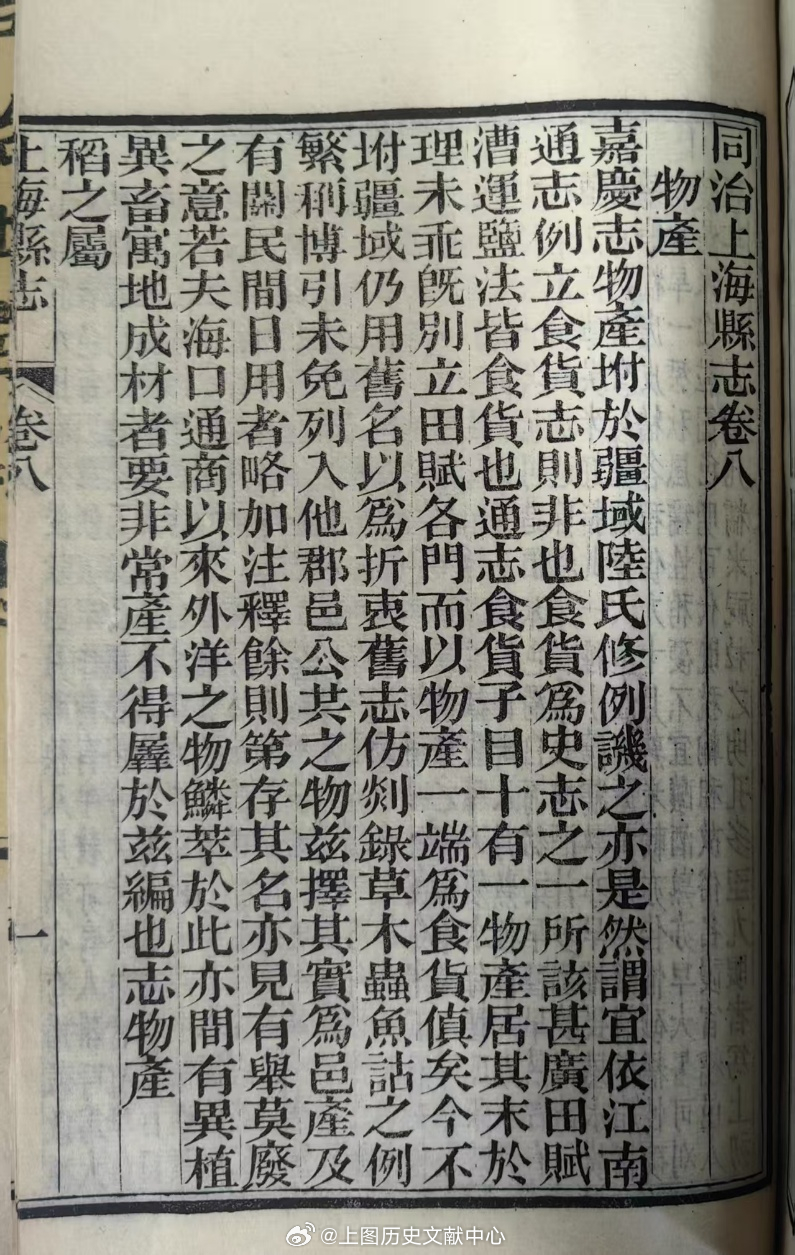 同治上海縣志卷八
物產
嘉慶志物產坿於疆域陸氏修例譏之亦是然謂宜依江南
通志例立食貨志則非也食貨爲史志之一所該甚廣田賦
漕運鹽法皆食貨也通志食貨子目十有一物產居其末於
理未乖旣別立田賦各門而以物產一端爲食貨傎矣今不
坿疆域仍用舊名以爲折衷舊志仿剡錄草木蟲魚詁之例
繁稱博引未免列入他郡邑公共之物兹擇其實爲邑產及
有關民間日用者略加注釋餘則第存其名亦見有舉莫廢
之意若夫海口通商以來外洋之物鱗萃於此亦間有異植
異畜寓地成材者要非常產不得羼於兹編也志物產
稻之屬
上海縣志 卷八 一
@上图历史文献中心